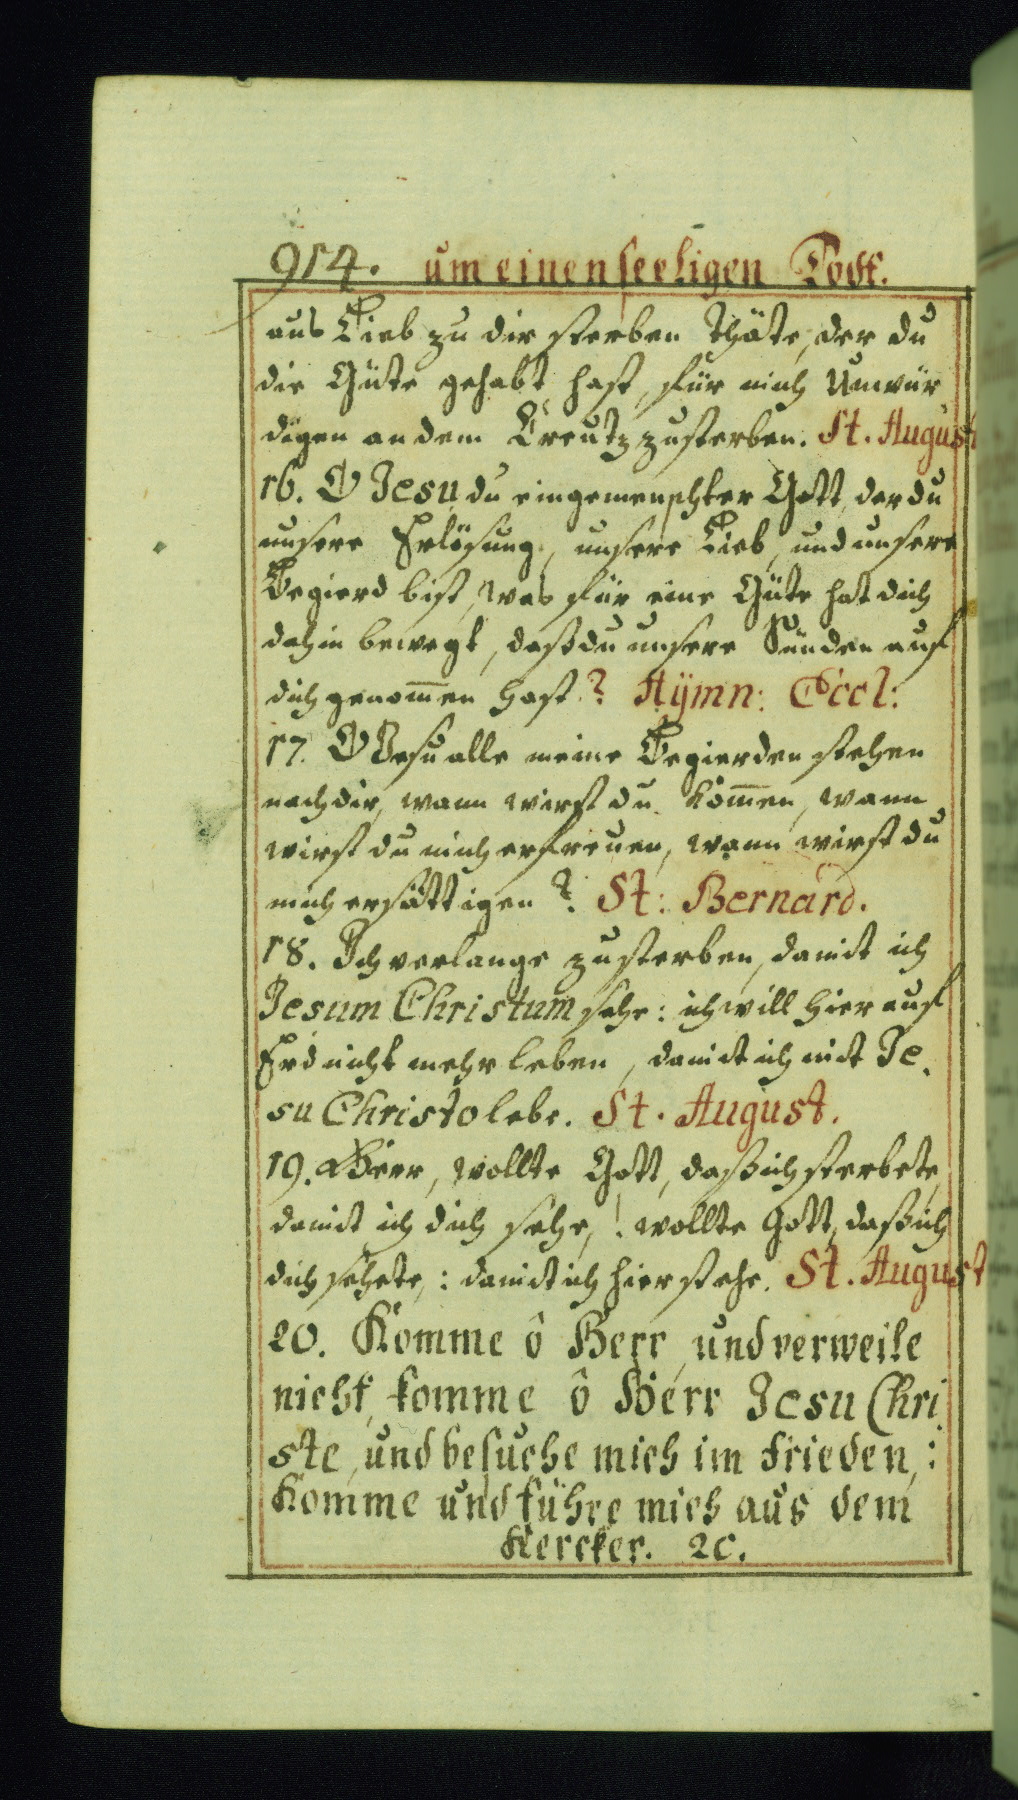 914. um einen seeligen Todt.
aus Lieb zu dir sterben thäte, der du
die Güte gehabt hast, für mich Unwür
digen an dem Creutz zusterben. St. August
16. O Jesu, du eingemenschter Gott, der du
unsere Erlösung, unsere Lieb, und unsere
Begierd bist, was für eine Güte hat dich
dahin bewegt, daß du unsere Sünden auf
dich genom̅en hast? Hÿmn: Eccl:
17. O Jesu alle meine Begierden stehen
nach dir, wann wirst du kom̅en, wann
wirst du mich erfreuen, wann wirst du
mich ersättigen? St: Bernard.
18. Ich verlange zusterben, damit ich
Jesum Christum sehe: ich will hier auf
Erd nicht mehr leben, damit ich mit Je
su Christo lebe. St. August.
19. Herr, wollte Gott, daß ich sterbete,
damit ich dich sehe,! wollte Gott, daß ich
dich sehete,: damit ich hier stehe. St. August
20. Komme ô Herr, und verweile
nicht, komme ô Herr Jesu Chri
ste, und besuche mich im Frieden,:
Komme und führe mich aus dem
Kercker. 2c.